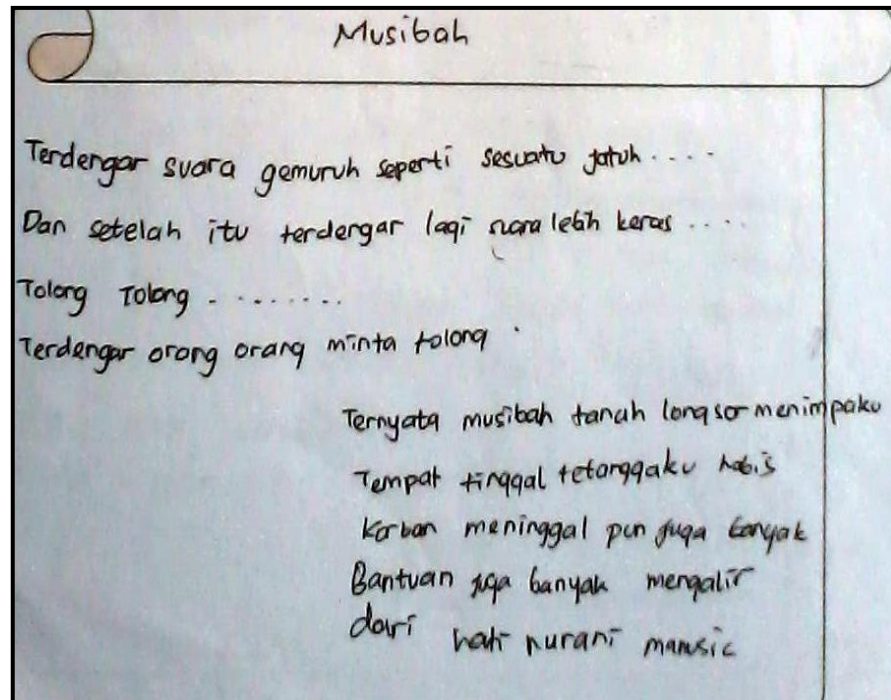 Musibah
Terdengar suara gemuruh seperti sesuatu jatuh....
Dan setelah itu terdengar lagi suara lebih keras....
Tolong Tolong ........
Terdengar orang orang minta tolong.
Ternyata musibah tanah longsor menimpaku
Tempat tinggal tetanggaku habis
Korban meninggal pun juga banyak
Bantuan juga banyak mengalir
dari hati nurani manusia